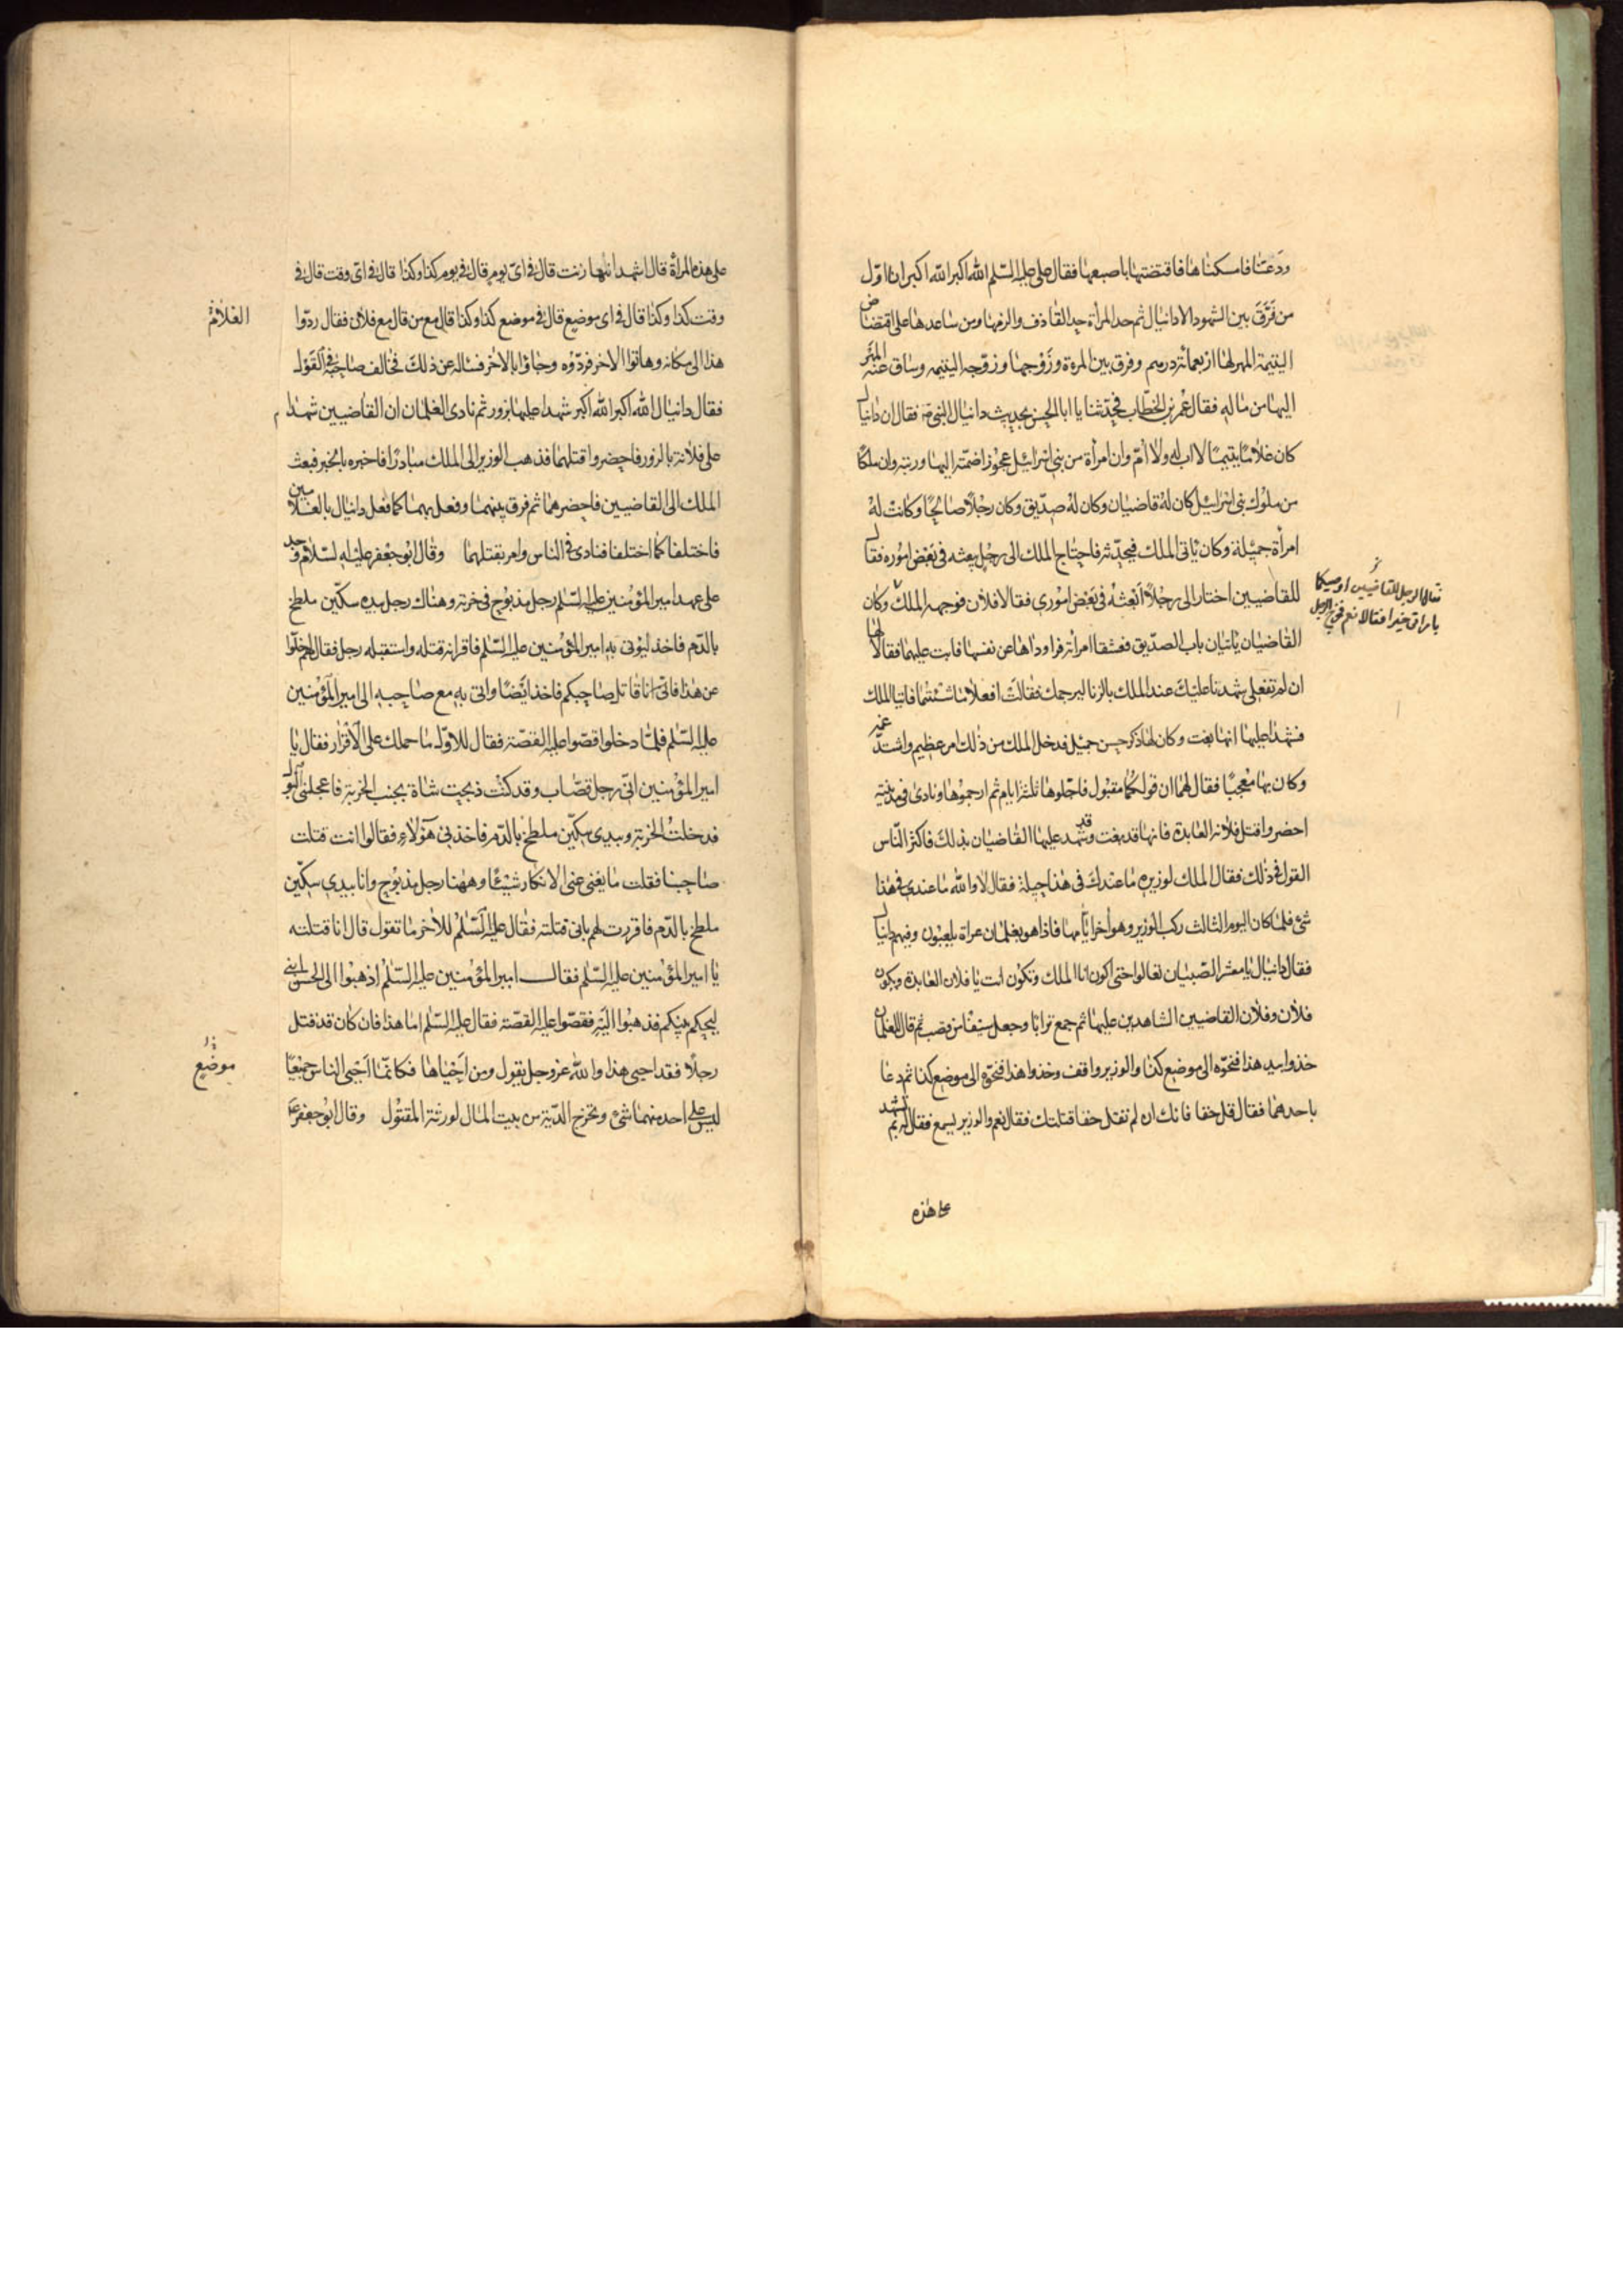 ودعتنا فامسكناها فاقتضتها باصبعها فقال على عليه السّلم الله اكبر الله اكبر انا اوّل
من فَرَّقَ بين الشهود الا دانيال ثم حد المرأة حد القاذف والزمها ومن ساعدها على اقتضاض
اليتيمة المهر لها اربعمائة درهم وفرق بين المرءة وزوجها وزوّجه اليتيمه وساق عنه المهر
اليها من ماله فقال عمر بن الخطّاب فحدّثنا يا ابا الحسن بحديث دانيال النبى فقال ان دانيال
كان غلامًا يتيمًا لا اب له ولا امّ وان امرأة من بنى اسرائيل عجوزا ضمّته اليها وربته وان ملكًا
من ملوك بنى اسرائيل كان له قاضيان وكان لهُ صدّيق وكان رجلًا صالحًا وكانت لهُ
امرأة جميلة وكان يأتى الملك فيحدّثه فاحتاج الملك الى رجل يبعثه فى بعض اموره فقال
للقاضيين اختارا لى رجلًا أبعثهُ فى بعض امورى فقالا فلان فوجهه الملك وكان
فقال الرجل للقاضيين اوصيكما
بامراتى خيرا فقالا نعم فخرج الرجل
القاضيان ياتيان باب الصدّيق فعشقا امرأته فراوداها عن نفسها فابت عليهما فقالا لها
ان لم تفعلى شهدنا عليك عند الملك بالزنا ليرجمك فقالت افعلا ما شئتما فاتيا الملك
فشهدا عليها انها بغت وكان لها ذكر حسن جميل فدخل الملك من ذلك امر عظيم واشتدّ غمه
وكان بها معجبًا فقال لهما ان قولكما مقبول فاجّلوها ثلثة ايام ثم ارجموها ونادى فى مدينته
احضروا قتل فلانة العابدة فانها قد بغت وقد شهد عليها القاضيان بذلك فاكثر النّاس
القول فى ذلك فقال الملك لوزيره ما عندك فى هذا حيلة فقال لا والله ما عندى فى هذا
شئ فلما كان اليوم الثالث ركب الوزير وهو اخر ايّامها فاذا هو بغلمان عراة يلعبون وفيهم دانيال
فقال دانيال يا معشر الصبيان تعالوا حتى اكون انا الملك وتكون انت يا فلان العابدة ويكون
فلان وفلان القاضيين الشاهدين عليها ثم جمع ترابا وجعل سيفا من قصب ثم قال للغلمان
خذوا بيد هذا فنحّوه الى موضع كذا والوزير واقف وخذوا هذا فنحّوه الى موضع كذا ثم دعا
باحدهما فقال قل حقا فانك ان لم تقل حقا قتلتك فقال نعم والوزير يسمع فقال له بم تشهد
على هذه
على هذه المراة قال اشهد انها زنت قال فى اىّ يوم قال فى يوم كذا وكذا قال فى اىّ وقت قال فى
وقت كذا وكذا قال فى اى موضع قال فى موضع كذا وكذا قال مع من قال مع فلان فقال ردّوا
الغلام
هذا الى مكانه وهاتوا الاخر فردّوه وجاؤا بالاخر فساله عن ذلك فخالف صاحبه فى القول
فقال دانيال الله اكبر الله اكبر شهدا عليها بزور ثم نادى الغلمان ان القاضيين شهدا
على فلانة بالزور فاحضروا قتلهما فذهب الوزير الى الملك مبادرًا فاخبره بالخبر فبعث
الملك الى القاضيين فاحضرهما ثم فرق بينهما وفعل بهما كما فعل دانيال بالغلامين
فاختلفا كما اختلفا فنادى فى الناس وامر بقتلهما وقال ابو جعفر عليه السّلام وجد
على عهد امير المؤمنين عليه السّلم رجل مذبوح فى خربة وهناك رجل بيده سكّين ملطخ
بالدّم فاخذ ليؤتى به امير المؤمنين عليه السّلم فاقر انه قتله واستقبله رجل فقال لهم خلّوا
عن هذا فانى انا قاتل صاحبكم فاخذ ايضًا واتى به مع صاحبه الى امير المؤمنين
عليه السّلم فلمّا دخلوا قصّوا عليه القصّة فقال للاوّل ما حملك على الاقرار فقال يا
امير المؤمنين انّى رجل قصّاب وقد كنت ذبحت شاة بجنب الخربة فاعجلنى البول
فدخلت الخربة وبيدى سكّين ملطخ بالدّم فاخذنى هؤلاء فقالوا انت قتلت
صاحبنا فقلت ما يغنى عنى الانكار شيئًا وههنا رجل مذبوح وانا بيدى سكّين
ملطخ بالدّم فاقررت لهم بانى قتلته فقال عليه السّلم للاخر ما تقول قال انا قتلته
يا امير المؤمنين عليه السّلم فقال امير المؤمنين عليه السّلم اذهبوا الى الحسن ابنى
ليحكم بينكم فذهبوا اليه فقصّوا عليه القصّة فقال عليه السّلم اما هذا فان كان قد قتل
رجلًا فقد احيى هذا والله عز وجل يقول ومن احياها فكانّما احيى الناس جميعًا
موضع
ليس على احد منهما شئ وتخرج الدّية من بيت المال لورثة المقتول وقال ابو جعفر ع